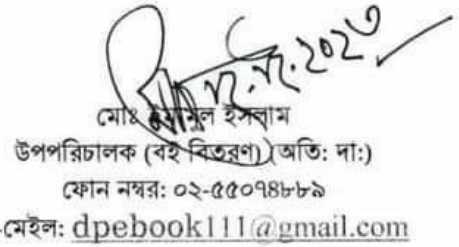 ১২.১২.২০২৩
মোঃ ইসলাম
উপপরিচালক (বই বিতরণ) (অতি: দা:)
ফোন নম্বর: ০২-৫৫০৭৪৮৮৯
-মেইল: dpebook111@gmail.com